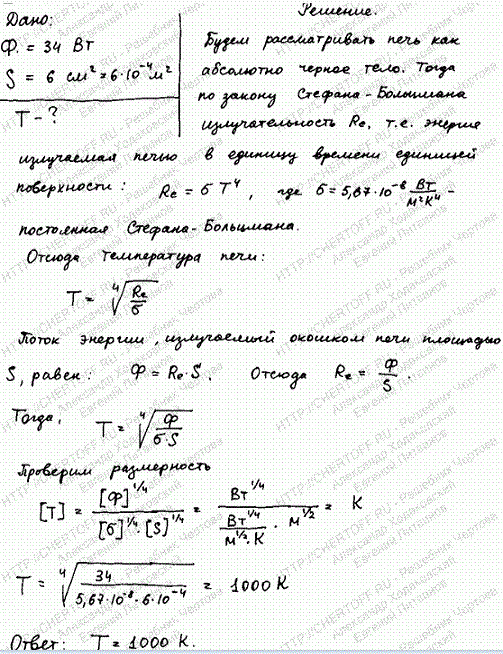 Дано:
Ф = 34 Вт
S = 6 см² = 6·10⁻⁴ м²
T - ?
Решение.
Будем рассматривать печь как
абсолютно черное тело. Тогда
по закону Стефана-Больцмана
излучательность Re, т.е. энергия
излучаемая печью в единицу времени единицей
поверхности: Re = σ T⁴, где σ = 5,67·10⁻⁸ Вт/м²К⁴ -
постоянная Стефана-Больцмана.
Отсюда температура печи:
T = ⁴√(Re/σ)
Поток энергии, излучаемый окошком печи площадью
S, равен: Ф = Re·S. Отсюда Re = Ф/S.
Тогда, T = ⁴√(Ф/(σ·S))
Проверим размерность
[T] = [Ф]^1/4 / ([σ]^1/4·[S]^1/4) = Вт^1/4 / (Вт^1/4/(м^1/2·К) · м^1/2) = К
T = ⁴√(34/(5,67·10⁻⁸·6·10⁻⁴)) = 1000 К
Ответ: T = 1000 К.
HTTP://CHERTOFF.RU - Решебник Чертова